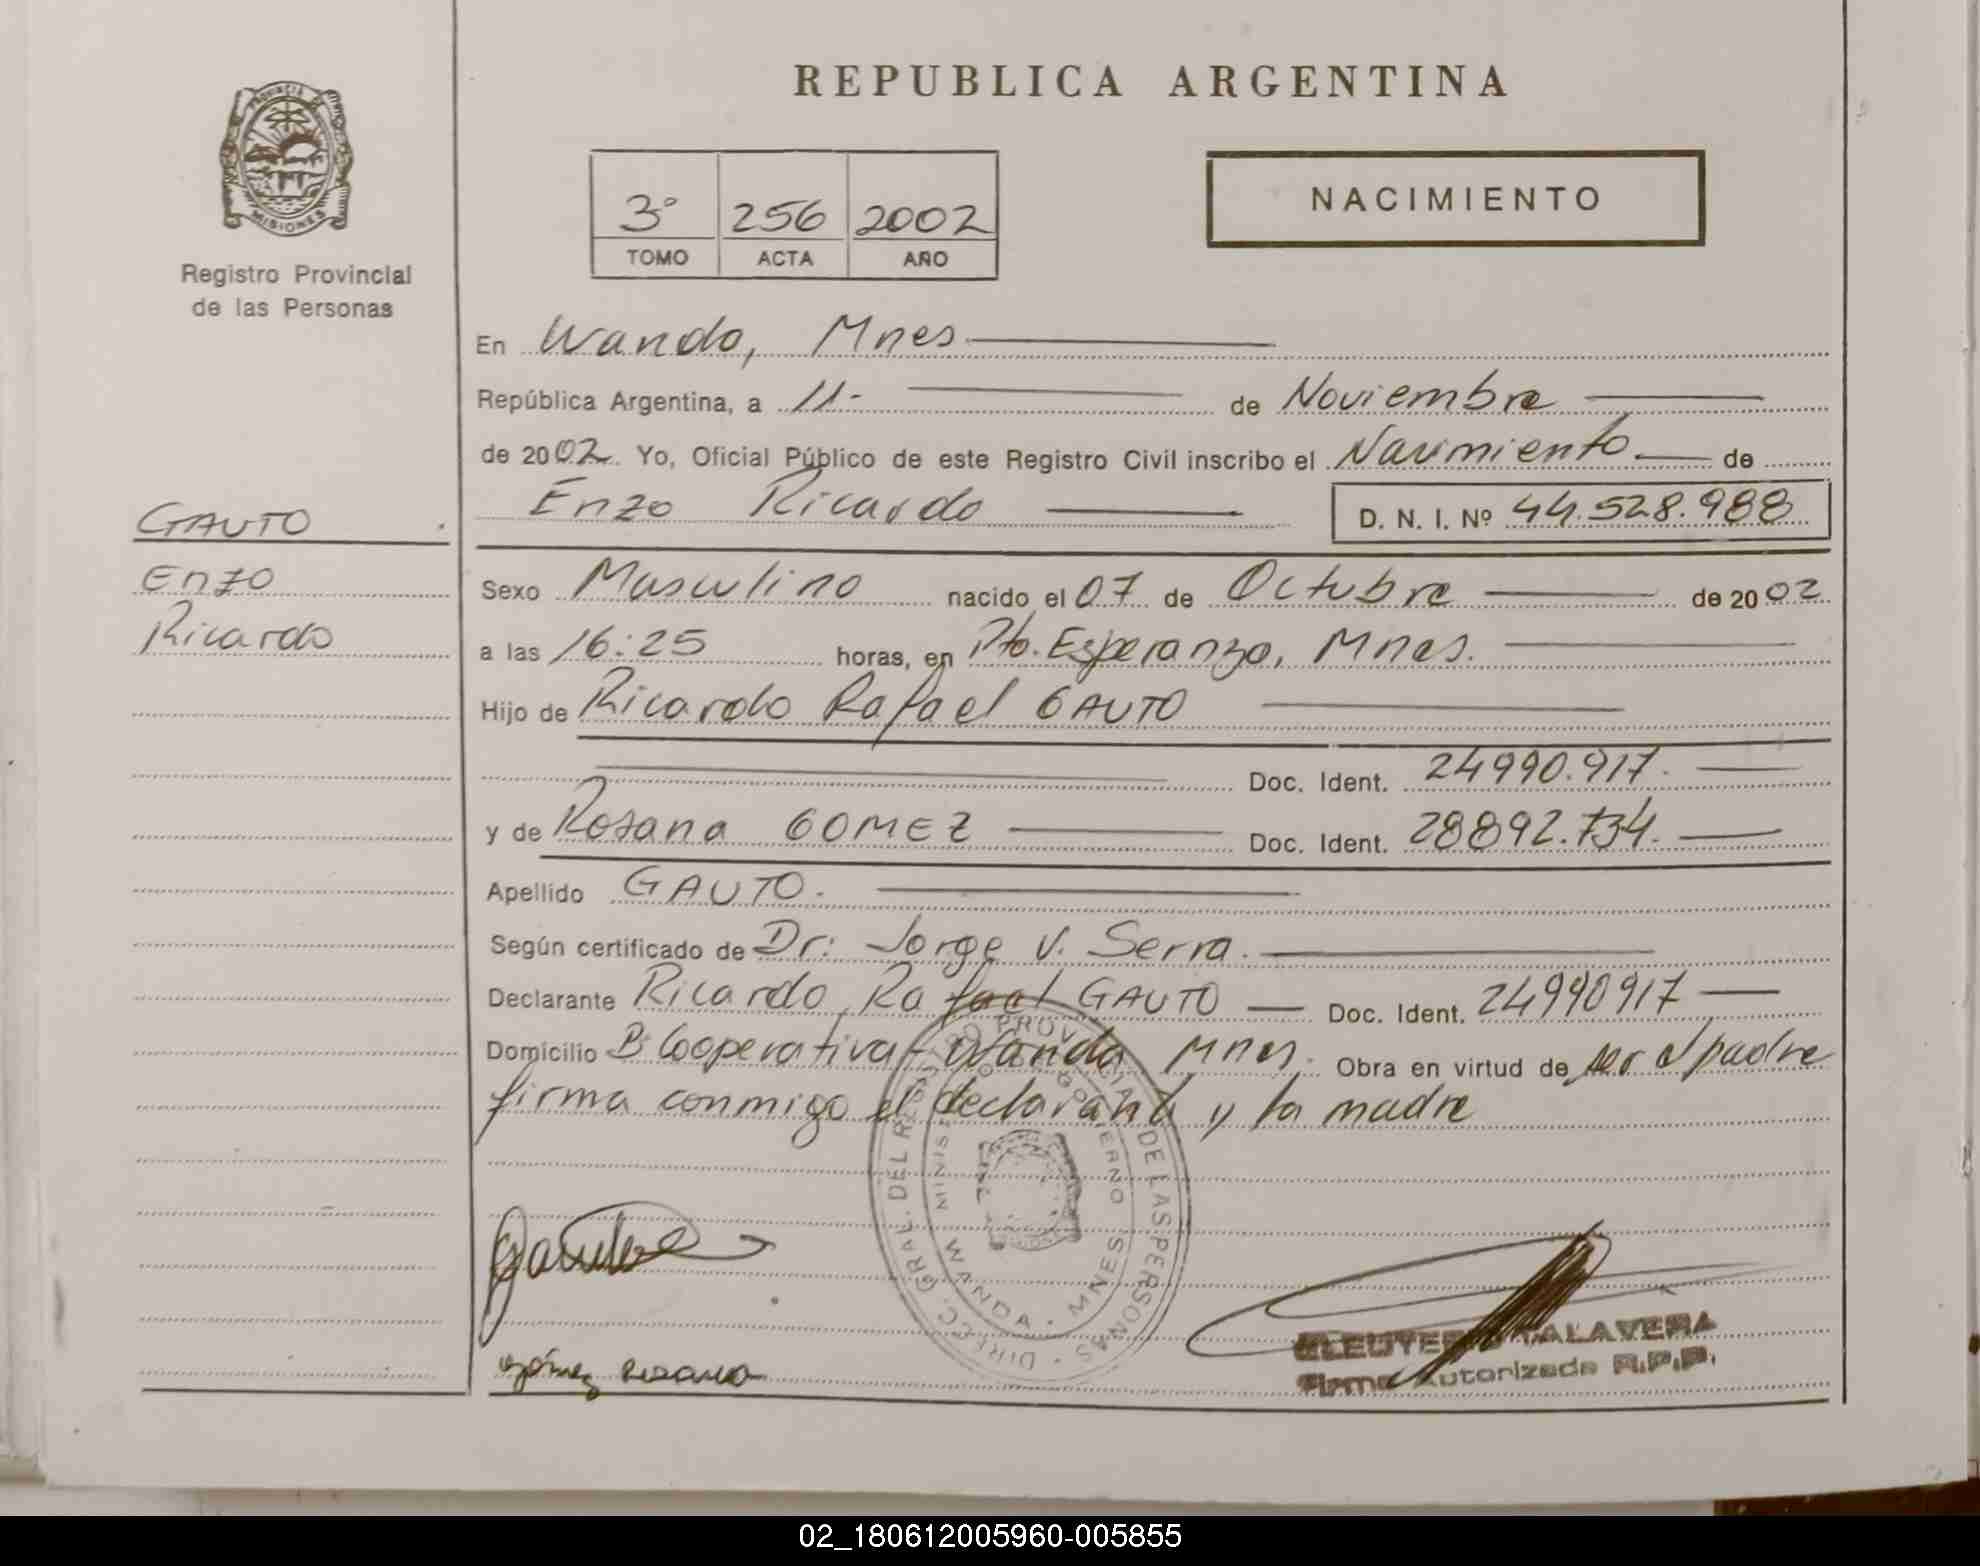 REPUBLICA ARGENTINA
PROVINCIA DE
MISIONES
Registro Provincial
de las Personas
3° 256 2002
TOMO ACTA AÑO
NACIMIENTO
En Wanda, Mnes
República Argentina, a 11- de Noviembre
de 2002 Yo, Oficial Público de este Registro Civil inscribo el Nacimiento de
Enzo Ricardo D. N. I. Nº 44.528.988
GAUTO
Enzo
Ricardo
Sexo Masculino nacido el 07 de Octubre de 2002
a las 16:25 horas, en Pto. Esperanza, Mnes.
Hijo de Ricardo Rafael GAUTO
Doc. Ident. 24990.917.
y de Rosana GOMEZ Doc. Ident. 28892.734.
Apellido GAUTO.
Según certificado de Dr: Jorge V. Serra.
Declarante Ricardo Rafael GAUTO Doc. Ident. 24990917
Domicilio Bº Cooperativa - Wanda, Mnes. Obra en virtud de ser el padre
firma conmigo el declarante y la madre
DIREC. GRAL. DEL REGISTRO PROVINCIAL DE LAS PERSONAS
WANDA · MNES
Gómez Rosana
ELEUTERIO TALAVERA
Firma Autorizada R.P.P.
02_180612005960-005855